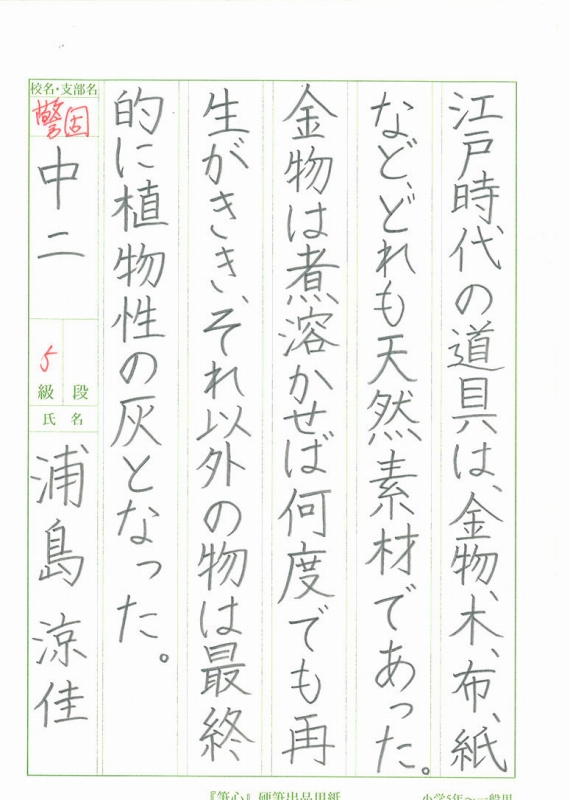 江戸時代の道具は、金物、木、布、紙
など、どれも天然素材であった。
金物は煮溶かせば何度でも再
生がきき、それ以外の物は最終
的に植物性の灰となった。
校名・支部名
警固
中二
5
級 段
氏 名
浦島 涼佳
『筆心』硬筆出品用紙
小学5年〜一般用